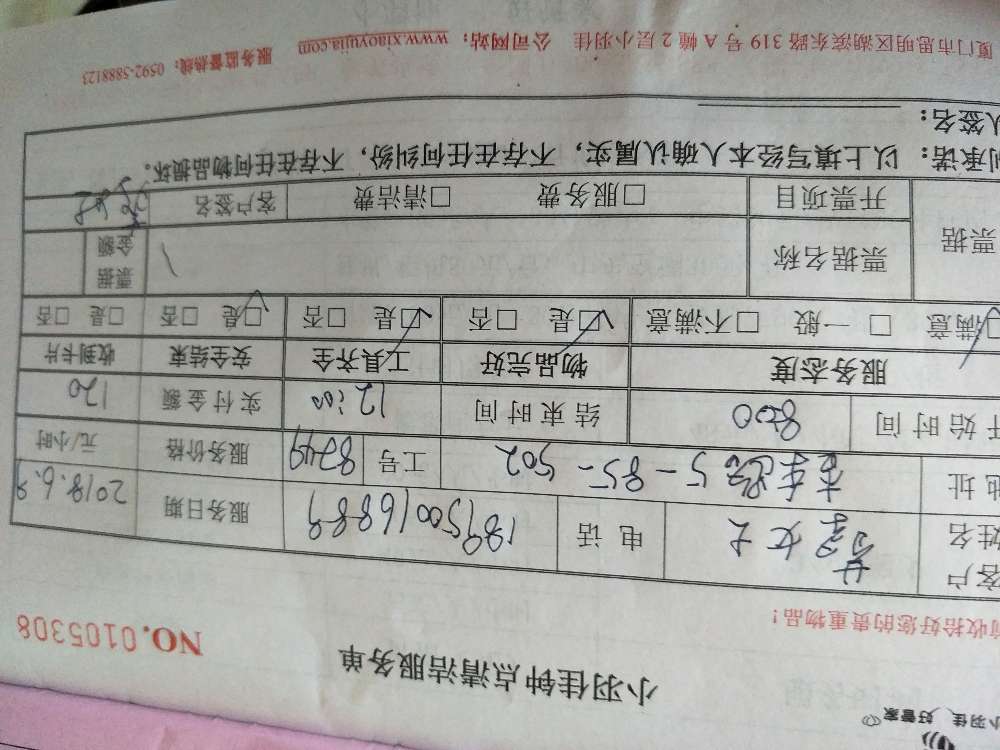 小羽佳 好管家
小羽佳钟点清洁服务单
收拾好您的贵重物品！
NO.0105308
客户姓名 女士 电话 18950016889 服务日期 2018.6.9
地址 5-85-502 工号 8249 服务价格 元/小时
开始时间 800 结束时间 12:00 实付金额 120
服务态度 物品完好 工具齐全 安全结束 收到卡片
☑满意 □一般 □不满意 ☑是 □否 ☑是 □否 ☑是 □否 □是 □否
票据 票据名称 票据金额
开票项目 □服务费 □清洁费 客户签名
承诺：以上填写经本人确认属实，不存在任何纠纷，不存在任何物品损坏。
人签名：
厦门市思明区湖滨东路319号A幢2层小羽佳 公司网站：www.xiaoyujia.com 服务监督热线：0592-5888123